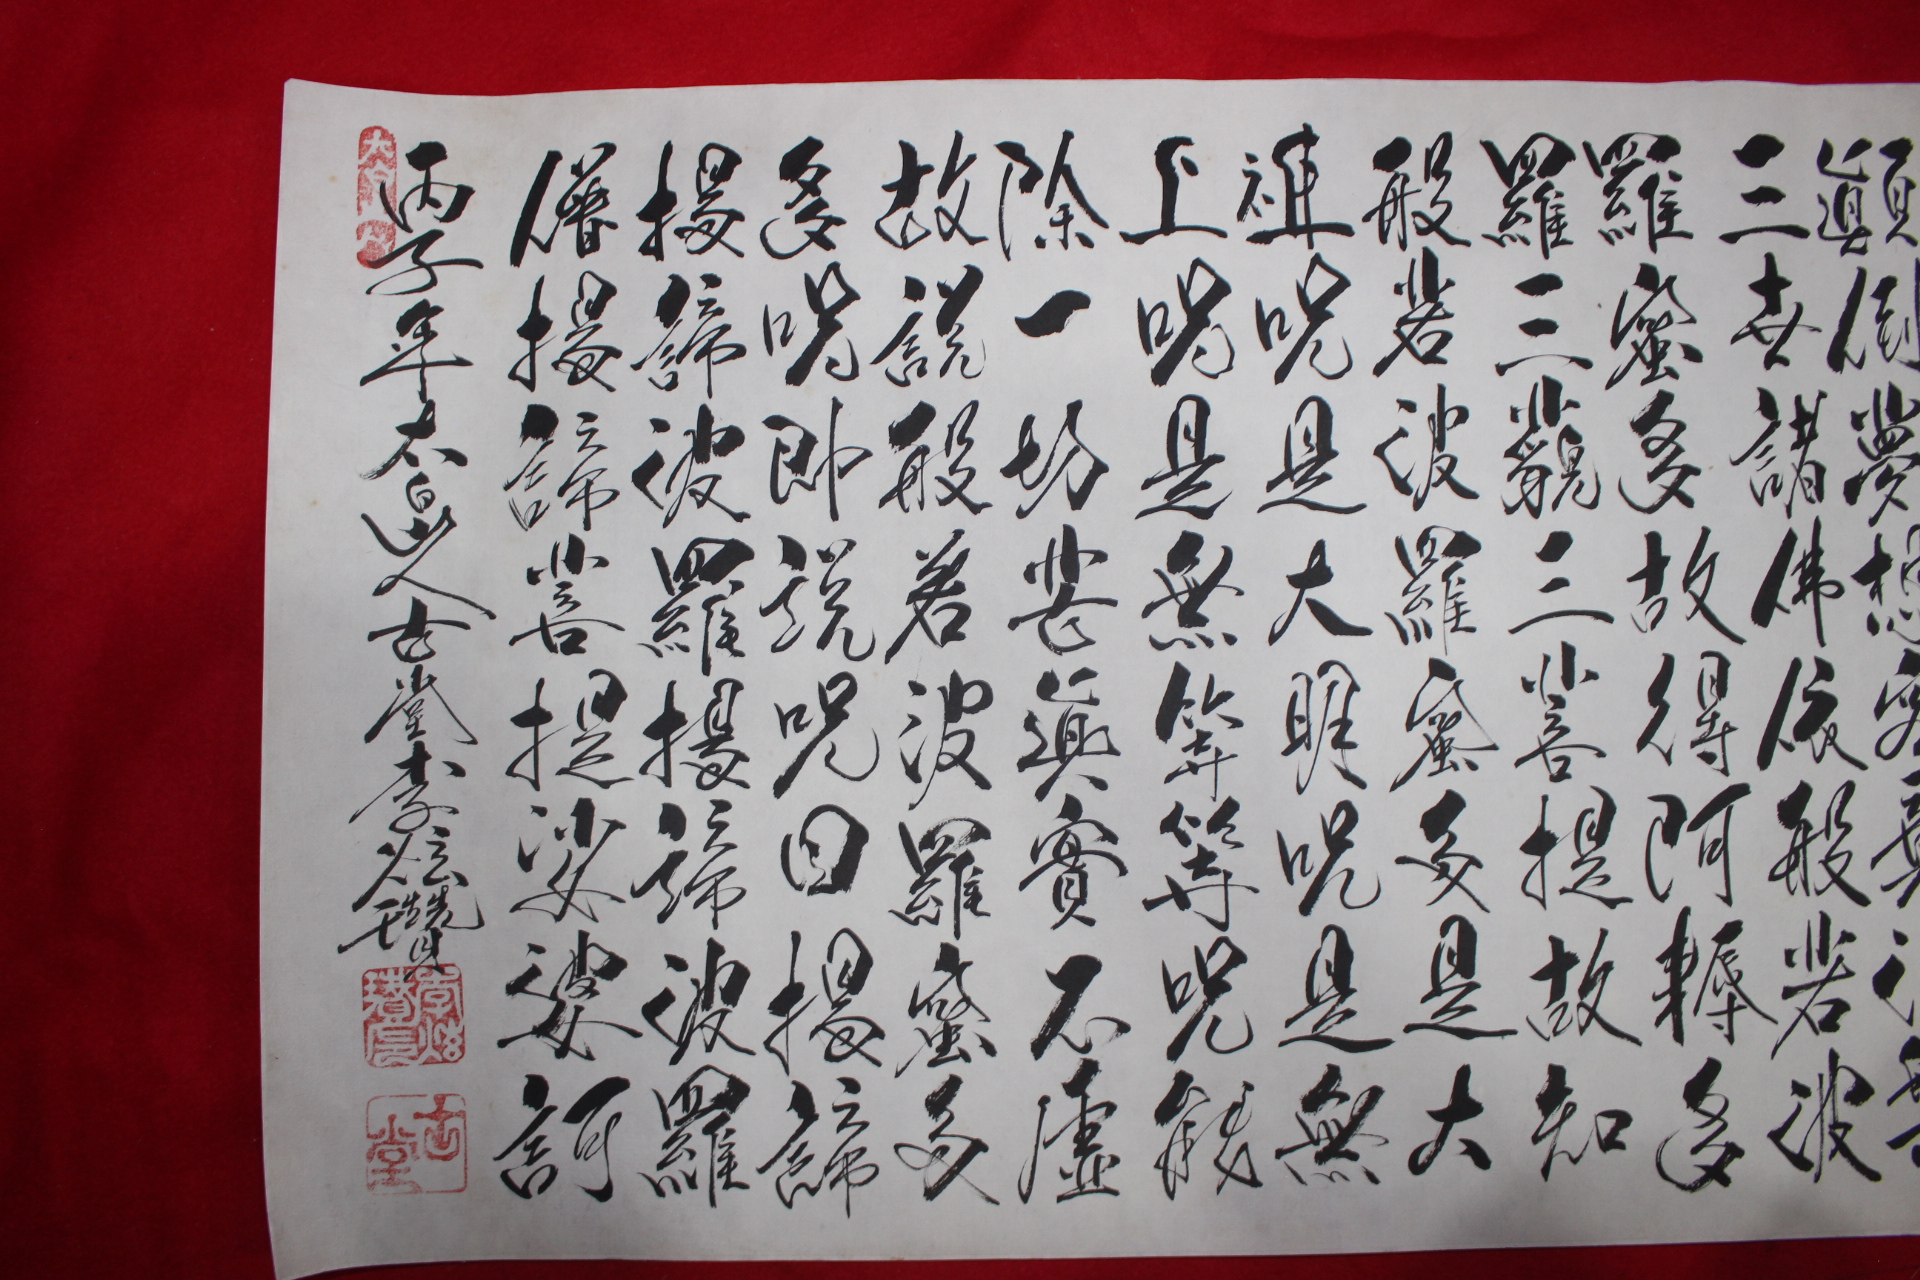 顚倒夢想究竟涅槃
三世諸佛依般若波
羅蜜多故得阿耨多
羅三藐三菩提故知
般若波羅蜜多是大
神呪是大明呪是無
上呪是無等等呪能
除一切苦眞實不虛
故說般若波羅蜜多
多呪卽說呪曰揭諦
揭諦波羅揭諦波羅
僧揭諦菩提娑婆訶
丙子年太白山人古堂李炫瓚
李炫瓚印
古堂